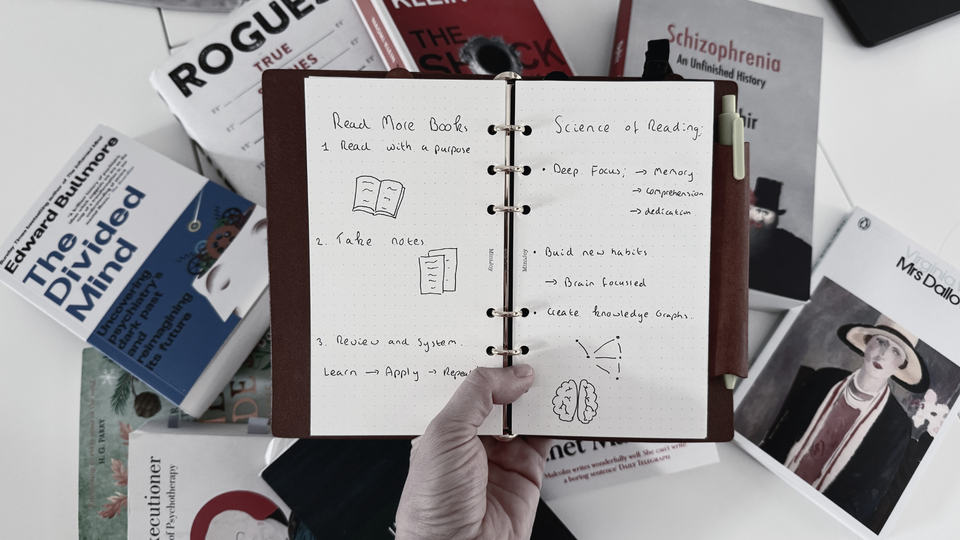 Read More Books
1 Read with a purpose
2. Take notes
3. Review and System.
Learn → Apply → Repea
Science of Reading:
• Deep Focus; → Memory
→ comprehension
→ dedication
• Buid new habits
→ Brain focussed
• Create knowledge Graphs.
ROGUES
TRUE
KLEIN
THE
SHOCK
Schizophrenia
An Unfinished History
Edward Bullmore
The
Divided
Mind
Uncovering
psychiatry's
dark past
and
reimagining
its future
H. G. PARRY
ecutioner
of Psychotherapy
net M
Malcolm writes wonderfully well. She can't write
a boring sentence' DAILY TELEGRAPH
Virginia
Mrs Dallo